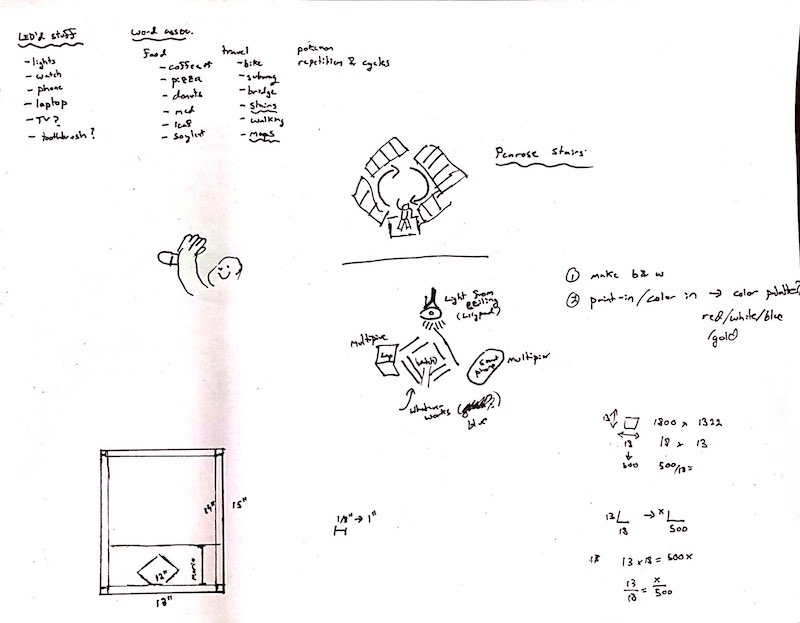 LED'd stuff
- lights
- watch
- phone
- laptop
- TV?
- toothbrush?
word assoc.
food
- pizza
- donuts
- soylent
travel
- bike
- subway
- bridge
- stairs
- walking
- maps
pokemon
repetition & cycles
Penrose stairs
Light from
ceiling
(Lilypad)
Multipix
Lap
Smart
phone
Multipix
whatever
works
blue
① make b & w
② paint-in/color in → color palette?
red/white/blue
/gold
13
1800 x 1322
18
18 x 13
↓
500
500/18=
1/8" → 1"
13
18
→ x
500
13 x 18 = 500x
13/18 = x/500
15"
12"
Mario
18"